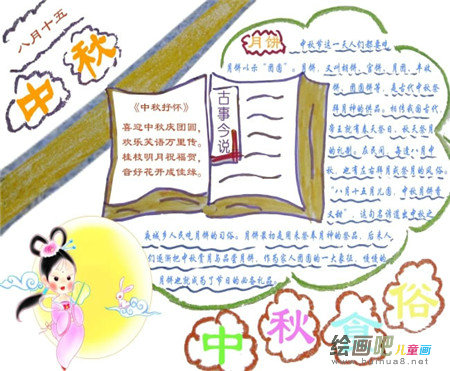 八月十五
中秋
《中秋抒怀》
喜迎中秋庆团圆，
欢乐笑语万里传。
桂枝明月祝福贺，
音好花开成佳缘。
古事今说
月饼
中秋节这一天人们都要吃
月饼以示“团圆”。月饼，又叫胡饼、宫饼、月团、丰收
饼、团圆饼等，是古代中秋祭
拜月神的供品。相传我国古代，
帝王就有春天祭日、秋天祭月
的礼制。在民间，每逢八月中
秋，也有左右拜月或祭月的风俗。
“八月十五月儿圆，中秋月饼香
又甜”，这句名谚道出中秋之
夜城乡人民吃月饼的习俗。月饼最初是用来祭奉月神的祭品，后来人
们逐渐把中秋赏月与品尝月饼，作为家人团圆的一大象征，慢慢的
月饼也就成为了节日的必备礼品。
中秋食俗
绘画吧儿童画